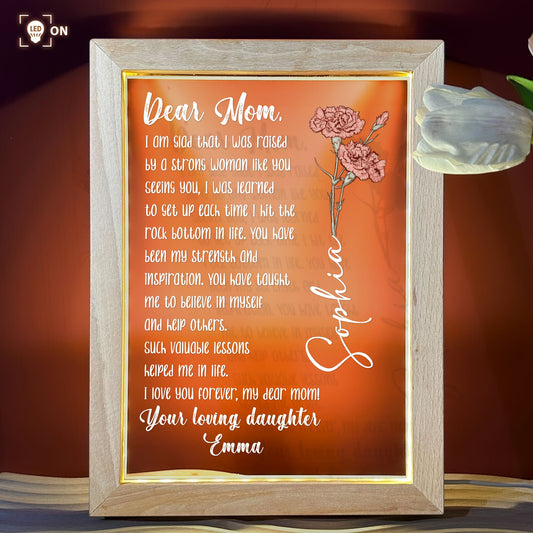 LED
ON
Dear Mom,
I am glad that I was raised
by a strong woman like you
seeing you, I was learned
to get up each time I hit the
rock bottom in life. You have
been my strength and
inspiration. You have taught
me to believe in myself
and help others.
Such valuable lessons
helped me in life.
I love you forever, my dear mom!
Your loving daughter
Emma
Sophia